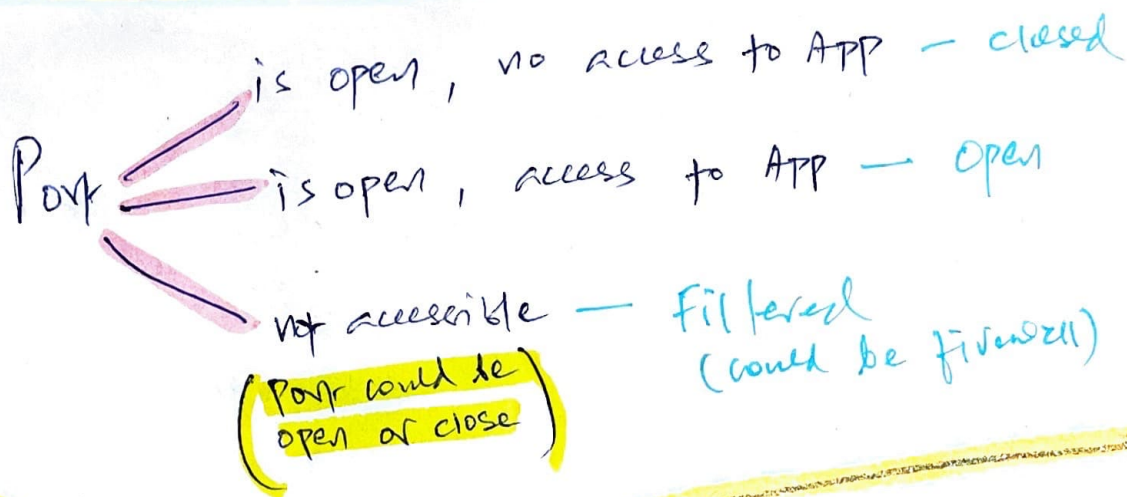 is open, no access to App - closed
Port
is open, access to App - Open
not accessible - Filtered
(could be firewall)
(Port could be
open or close)